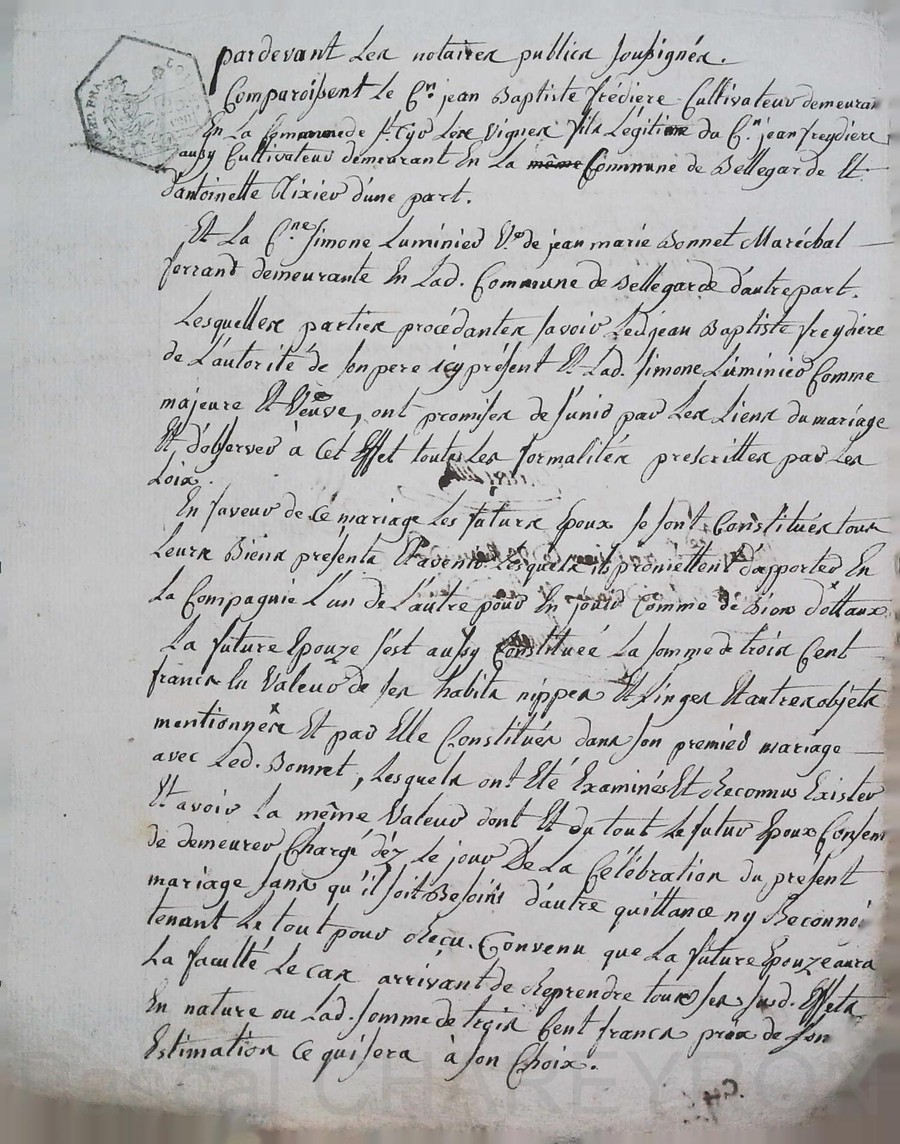 pardevant Les notaires publics soussignés.
Comparoissent Le C.n jean Baptiste frédiere Cultivateur demeuran
En La Commune de St Cyr Les Vignes fils Légitime du C.n jean freydiere
aussy Cultivateur demeurant En La même Commune de Bellegarde Et
d'antoinette Tixier d'une part.
Et La C.ne Simone Luminier V.e de jean marie Bonnet Maréchal
ferrant demeurante En Lad. Commune de Bellegarde d'autre part.
Lesquelles parties procédantes savoir Led. jean Baptiste freydiere
de L'autorité de son pere icy présent Et Lad. simone Luminier Comme
majeure Et Veuve, ont promises de s'unir par Les Liens du mariage
Et d'observer à Cet Effet toutes Les formalités prescrittes par Les
Loix.
En faveur de Ce mariage Les futurs Epoux se sont Constitués tous
Leurs Biens présents Et avenir Lesquels ils promettent d'apporter En
La Compagnie L'un de L'autre pour En jouir Comme de Biens dottaux
La future Epouze s'est aussy Constituée La somme de trois Cent
francs En Valeur de ses habits nippes Et Linges Et autres objets
mentionnés Et par Elle Constitués dans son premier mariage
avec Led. Bonnet, Lesquels ont Eté Examinés Et Reconnus Exister
Et avoir La même Valeur dont Et du tout Le futur Epoux Consent
de demeurer Chargé déz Le jour De La Célébration du présent
mariage sans qu'il soit Besoins d'autre quittance ny Reconnoi
tenant Le tout pour Reçu. Convenu que La future Epouze aura
La faculté Le cas arrivant de Reprendre tous ses susd. Effets
En nature ou Lad. somme de trois Cent francs prix de Son
Estimation Ce qui sera à son Choix.
CHAREYRON